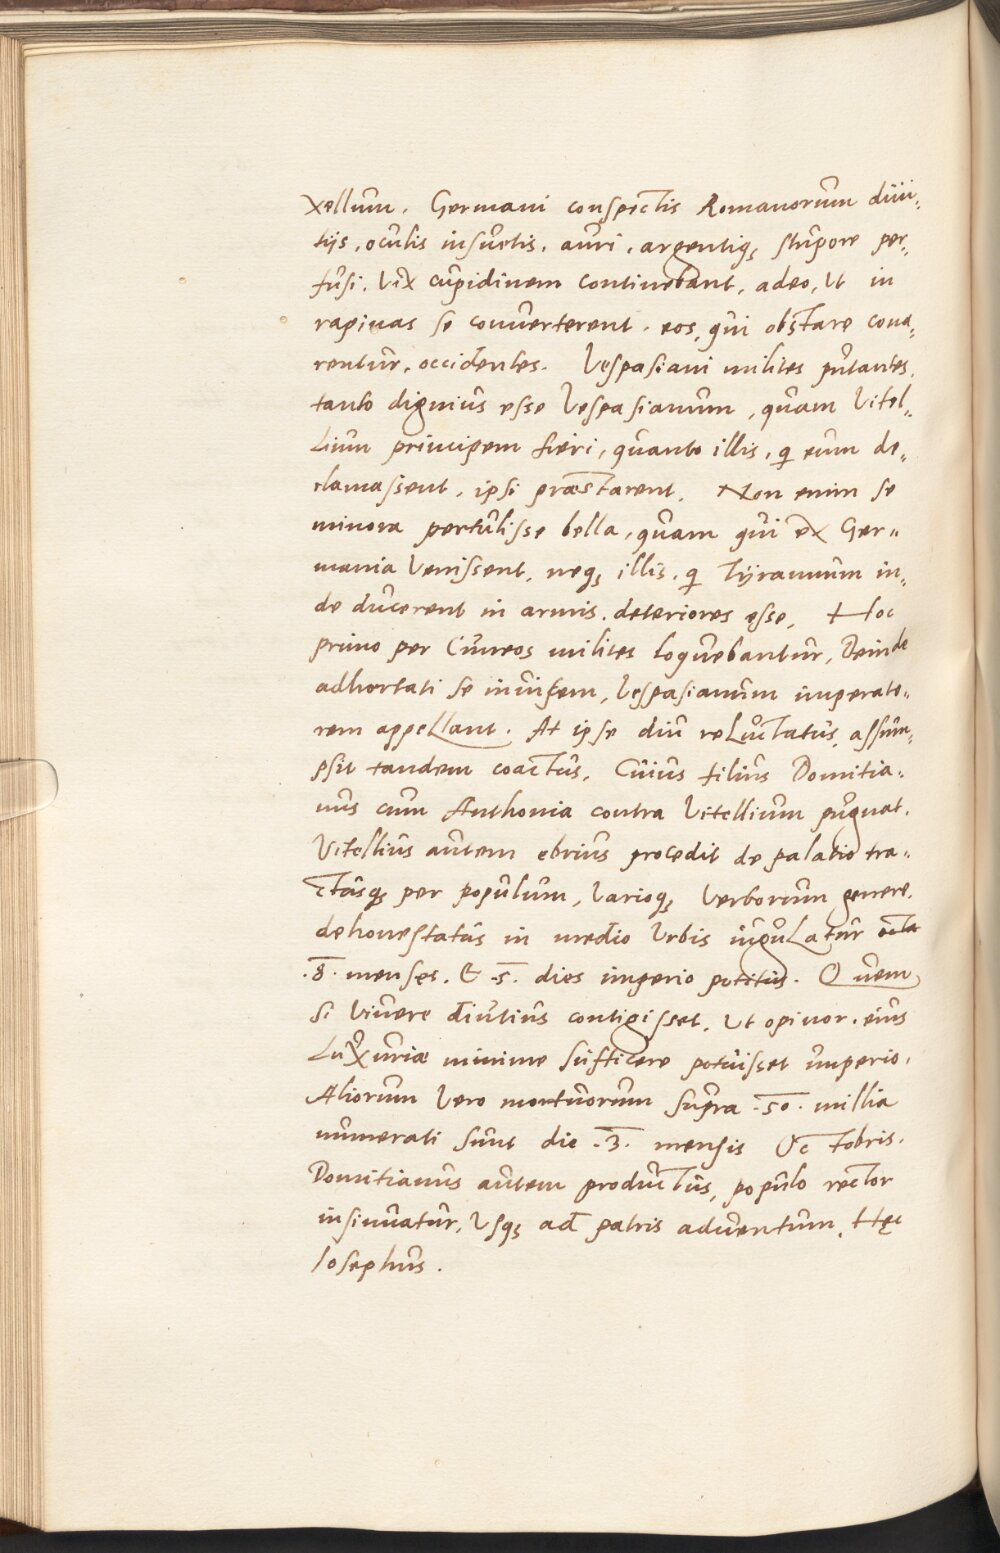 xellum. Germani conspectis Romanorum diui-
tijs, oculis insuetis, auri, argentiq; stupore per-
fusi. Vix cupidinem continebant, adeo, ut in
rapinas se conuerterent, eos, qui obstare cona-
rentur, occidentes. Vespasiani milites putantes,
tanto dignius esse Vespasianum, quam Vitel-
lium principem fieri, quanto illis, q eum de-
clamassent, ipsi præstarent. Non enim se
minora pertulisse bella, quam qui ex Ger-
mania Venissent, neq; illis, q Tyrannum in-
de ducerent in armis, deteriores esse. Hoc
primo per Cuneos milites loquebantur, Deinde
adhortati se inuicem, Vespasianum imperato-
rem appellant. At ipse diu reluctatus, assum-
psit tandem coactus, Cuius filius Domitia-
nus cum Anthonia contra Vitellium pugnat.
Vitellius autem ebrius procedit de palatio tra-
ctusq; per populum, Varioq; Verborum genere,
dehonestatus in medio Vrbis iugulatur
.8. menses. & .5. dies imperio potitus. Quem
si Viuere diutius contigisset, Vt opinor, eius
Luxuriæ minime sufficere potuisset imperio.
Aliorum Vero mortuorum supra .50. millia
numerati sunt die .3. mensis Octobris.
Domitianus autem productus, populo rector
insinuatur, Vsq; ad patris aduentum. Hęc
Iosephus.